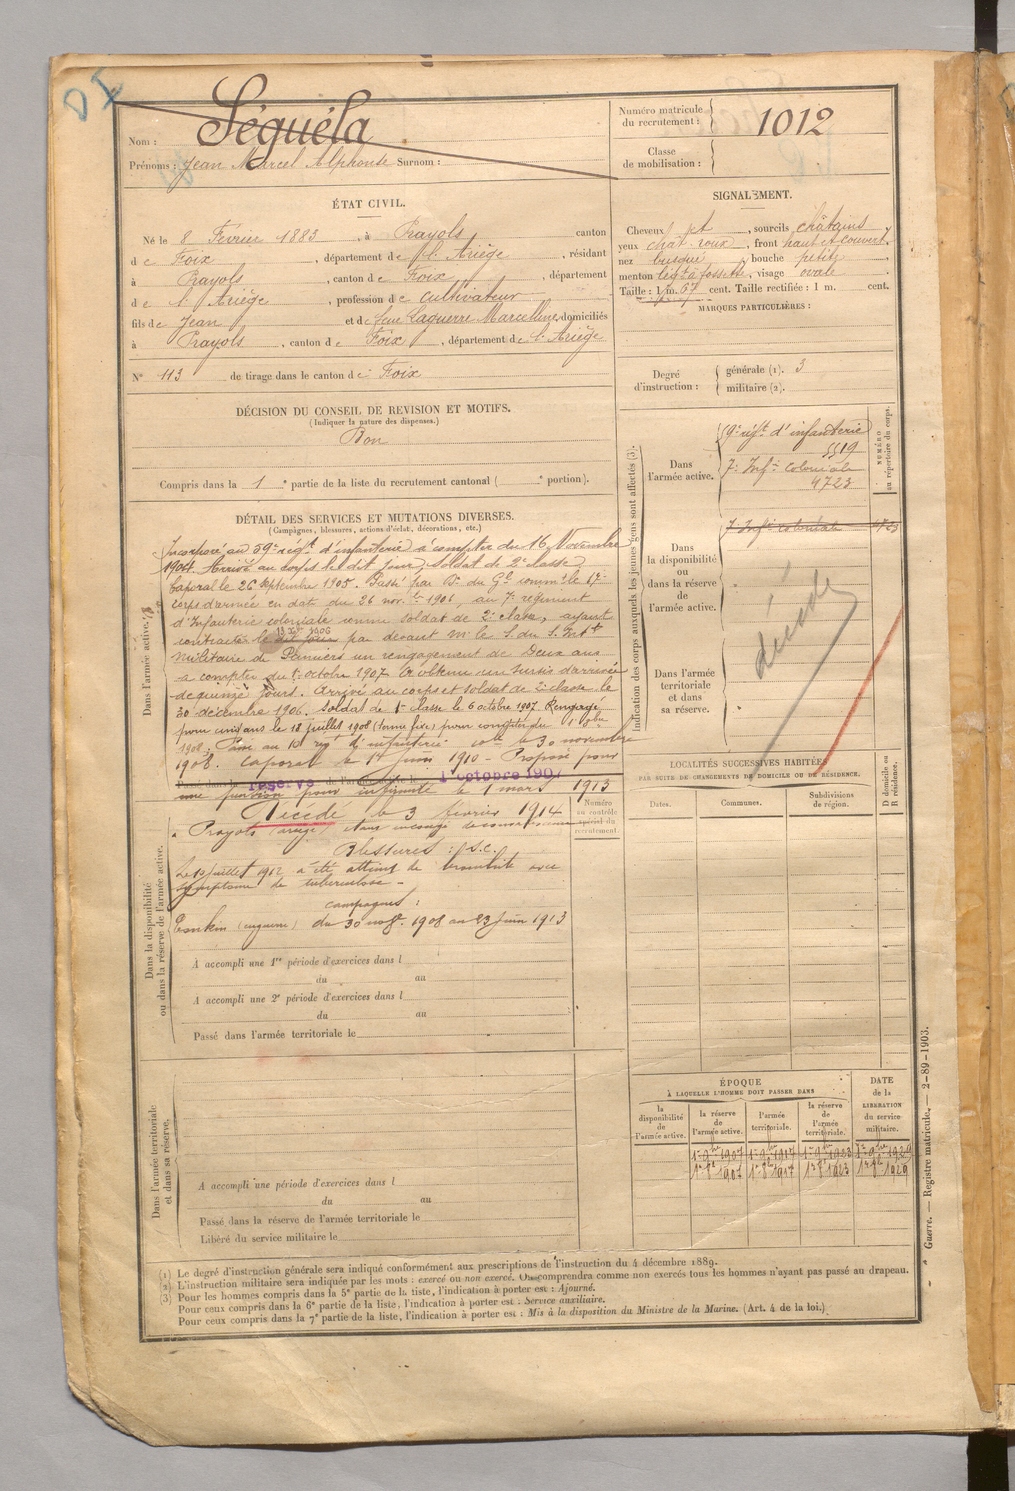 Séguéla
Nom :
Prénoms : Jean Marcel Alphonse Surnom :
Numéro matricule du recrutement : 1012
Classe de mobilisation :
ÉTAT CIVIL.
Né le 8 Février 1883, à Prayols canton
de Foix, département de l'Ariège, résidant
à Prayols, canton de Foix, département
de l'Ariège, profession de cultivateur
fils de Jean et de feue Laguerre Marcelline, domiciliés
à Prayols, canton de Foix, département de l'Ariège
N° 113 de tirage dans le canton de Foix
SIGNALEMENT.
Cheveux ct, sourcils châtains
yeux chat. roux, front haut et couvert,
nez busqué, bouche petite,
menton à fossette, visage ovale
Taille : 1 m. 67 cent. Taille rectifiée : 1 m. cent.
MARQUES PARTICULIÈRES :
Degré d'instruction :
générale (1). 3
militaire (2).
DÉCISION DU CONSEIL DE REVISION ET MOTIFS.
(Indiquer la nature des dispenses.)
Bon
Compris dans la 1e partie de la liste du recrutement cantonal ( e portion).
DÉTAIL DES SERVICES ET MUTATIONS DIVERSES.
(Campagnes, blessures, actions d'éclat, décorations, etc.)
Dans l'armée active.
Incorporé au 59e régt d'infanterie à compter du 16 Novembre
1904. Arrivé au corps le dit jour, soldat de 2e classe.
Caporal le 26 Septembre 1905. Passé par Don du Gal commt le 17e
corps d'armée en date du 26 nov. 1906, au 7e régiment
d'Infanterie coloniale comme soldat de 2e classe, ayant
contracté le dit jour 1906 par devant Mr le S. du S. Intt
militaire de Pamiers un rengagement de Deux ans
à compter du 1er octobre 1907. A obtenu un sursis d'arrivée
de quinze jours. Arrivé au corps et soldat de 2e classe le
30 décembre 1906. Soldat de 1e classe le 6 octobre 1907. Rengagé
pour cinq ans le 18 juillet 1908 pour compter du 1er
1908. Passé au 10 régt d'infanterie le 30 novembre
1908. Caporal le 1er juin 1910 - Proposé pour
réserve 1er octobre 1907
une pour infirmité le 1 mars 1913
Décédé le 3 février 1914
à Prayols
Blessures : S.C.
Le juillet 1912 a été atteint de bronchite avec
symptôme de tuberculose -
campagnes :
Tonkin (en guerre) du 30 nov. 1908 au 23 juin 1913
Dans la disponibilité ou dans la réserve de l'armée active.
A accompli une 1re période d'exercices dans l
du au
A accompli une 2e période d'exercices dans l
du au
Passé dans l'armée territoriale le
Numéro au contrôle spécial du recrutement
Dans l'armée territoriale et dans sa réserve.
A accompli une période d'exercices dans l
du au
Passé dans la réserve de l'armée territoriale le
Libéré du service militaire le
Indication des corps auxquels les jeunes gens sont affectés (3).
NUMÉRO au répertoire du corps.
Dans l'armée active.
59e régt d'infanterie
5519
7e Infie coloniale
4723
Dans la disponibilité ou dans la réserve de l'armée active.
7 Infie coloniale 4723
décédé
Dans l'armée territoriale et dans sa réserve.
LOCALITÉS SUCCESSIVES HABITÉES
PAR SUITE DE CHANGEMENTS DE DOMICILE OU DE RÉSIDENCE.
Dates. Communes. Subdivisions de région. D domicile ou R résidence.
ÉPOQUE
À LAQUELLE L'HOMME DOIT PASSER DANS
DATE de la LIBÉRATION du service militaire.
la disponibilité de l'armée active. la réserve de l'armée active. l'armée territoriale. la réserve de l'armée territoriale.
1er 9bre 1907 1er 9bre 1917 1er 9bre 1923 1er 9bre 1929
1er 8bre 1907 1er 8bre 1917 1er 8bre 1923 1er 8bre 1929
Guerre. — Registre matricule. — 2-89-1903.
(1) Le degré d'instruction générale sera indiqué conformément aux prescriptions de l'instruction du 4 décembre 1889.
(2) L'instruction militaire sera indiquée par les mots : exercé ou non exercé. On comprendra comme non exercés tous les hommes n'ayant pas passé au drapeau.
(3) Pour les hommes compris dans la 5e partie de la liste, l'indication à porter est : Ajourné.
Pour ceux compris dans la 6e partie de la liste, l'indication à porter est : Service auxiliaire.
Pour ceux compris dans la 7e partie de la liste, l'indication à porter est : Mis à la disposition du Ministre de la Marine. (Art. 4 de la loi.)